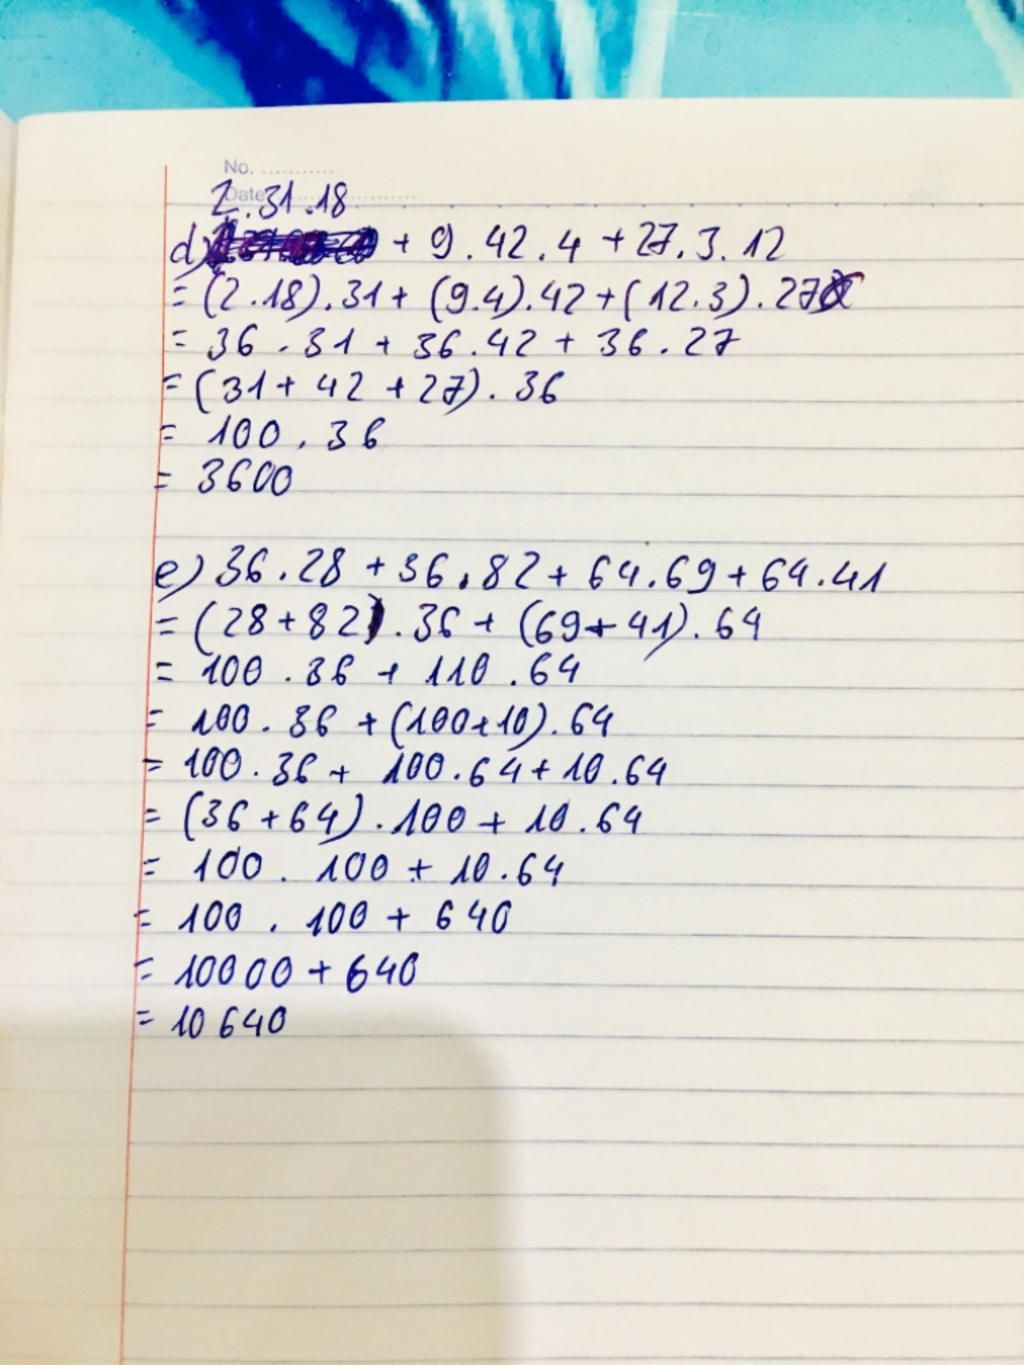 No. ............
Date ....................
2.31.18
d) + 9.42.4 + 27.3.12
= (2.18).31 + (9.4).42 + (12.3).27
= 36.31 + 36.42 + 36.27
= (31 + 42 + 27).36
= 100.36
= 3600
e) 36.28 + 36.82 + 64.69 + 64.41
= (28 + 82).36 + (69 + 41).64
= 100.36 + 110.64
= 100.36 + (100 + 10).64
= 100.36 + 100.64 + 10.64
= (36 + 64).100 + 10.64
= 100.100 + 10.64
= 100.100 + 640
= 10000 + 640
= 10640